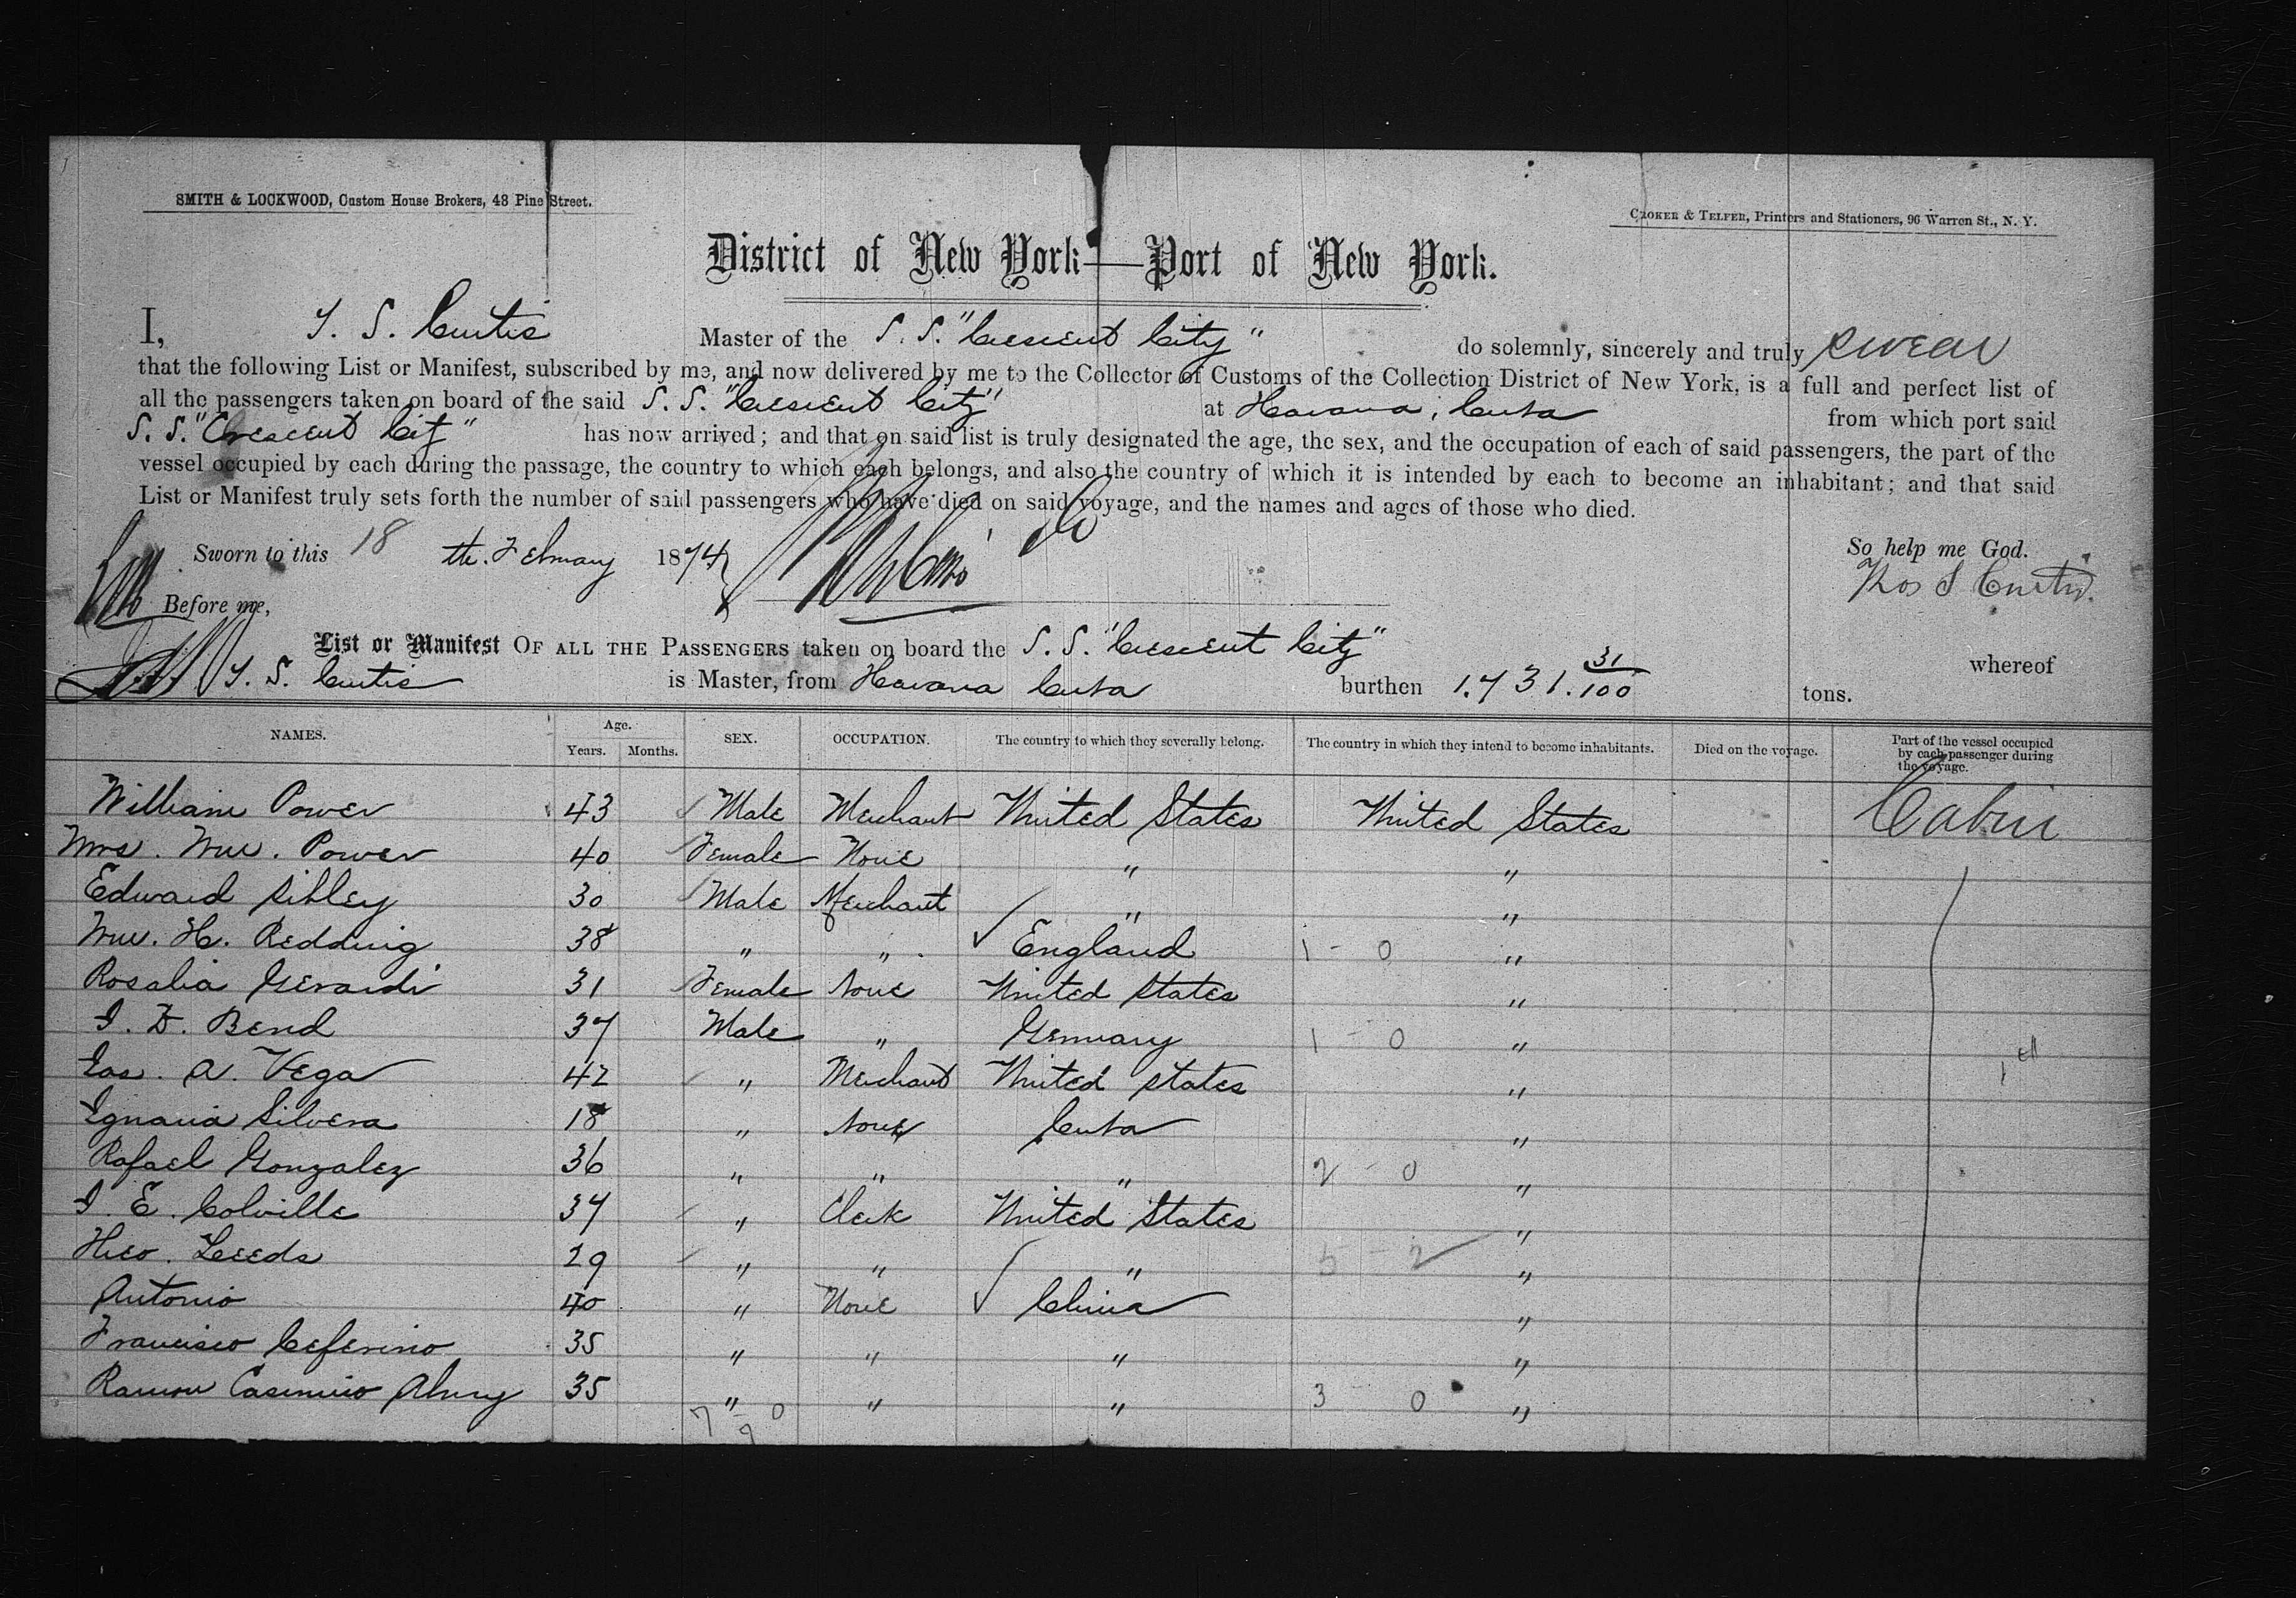 SMITH & LOCKWOOD, Custom House Brokers, 48 Pine Street.
CROKER & TELFER, Printers and Stationers, 96 Warren St., N. Y.
District of New York—Port of New York.
I, T. S. Curtis Master of the S. S. "Crescent City" do solemnly, sincerely and truly swear
that the following List or Manifest, subscribed by me, and now delivered by me to the Collector of Customs of the Collection District of New York, is a full and perfect list of
all the passengers taken on board of the said S. S. "Crescent City" at Havana, Cuba from which port said
S. S. "Crescent City" has now arrived; and that on said list is truly designated the age, the sex, and the occupation of each of said passengers, the part of the
vessel occupied by each during the passage, the country to which each belongs, and also the country of which it is intended by each to become an inhabitant; and that said
List or Manifest truly sets forth the number of said passengers who have died on said voyage, and the names and ages of those who died.
Sworn to this 18 th. February 1874 So help me God.
Before me, Thos S Curtis.
List or Manifest OF ALL THE PASSENGERS taken on board the S. S. "Crescent City" whereof
T. S. Curtis is Master, from Havana Cuba burthen 1.731.31/100 tons.
NAMES. Age. Years. Months. SEX. OCCUPATION. The country to which they severally belong. The country in which they intend to become inhabitants. Died on the voyage. Part of the vessel occupied by each passenger during the voyage.
William Power 43 Male Merchant United States United States Cabin
Mrs. Wm. Power 40 Female None " "
Edward Sibley 30 Male Merchant " "
Wm. H. Redding 38 " " England 1 - 0 "
Rosalia Gerardi 31 Female None United States "
I. D. Bend 37 Male " Germany 1 - 0 "
Jas. A. Vega 42 " Merchant United States "
Ignacia Silvera 18 " None Cuba "
Rafael Gonzalez 36 " " " 2 - 0 "
I. E. Colville 37 " Clerk United States "
Theo. Leeds 29 " " " 5 - 2 "
Antonio 40 " None China "
Francisco Ceferino 35 " " " "
Ramon Casimiro 35 " " " 3 0 "
7 - 0
9